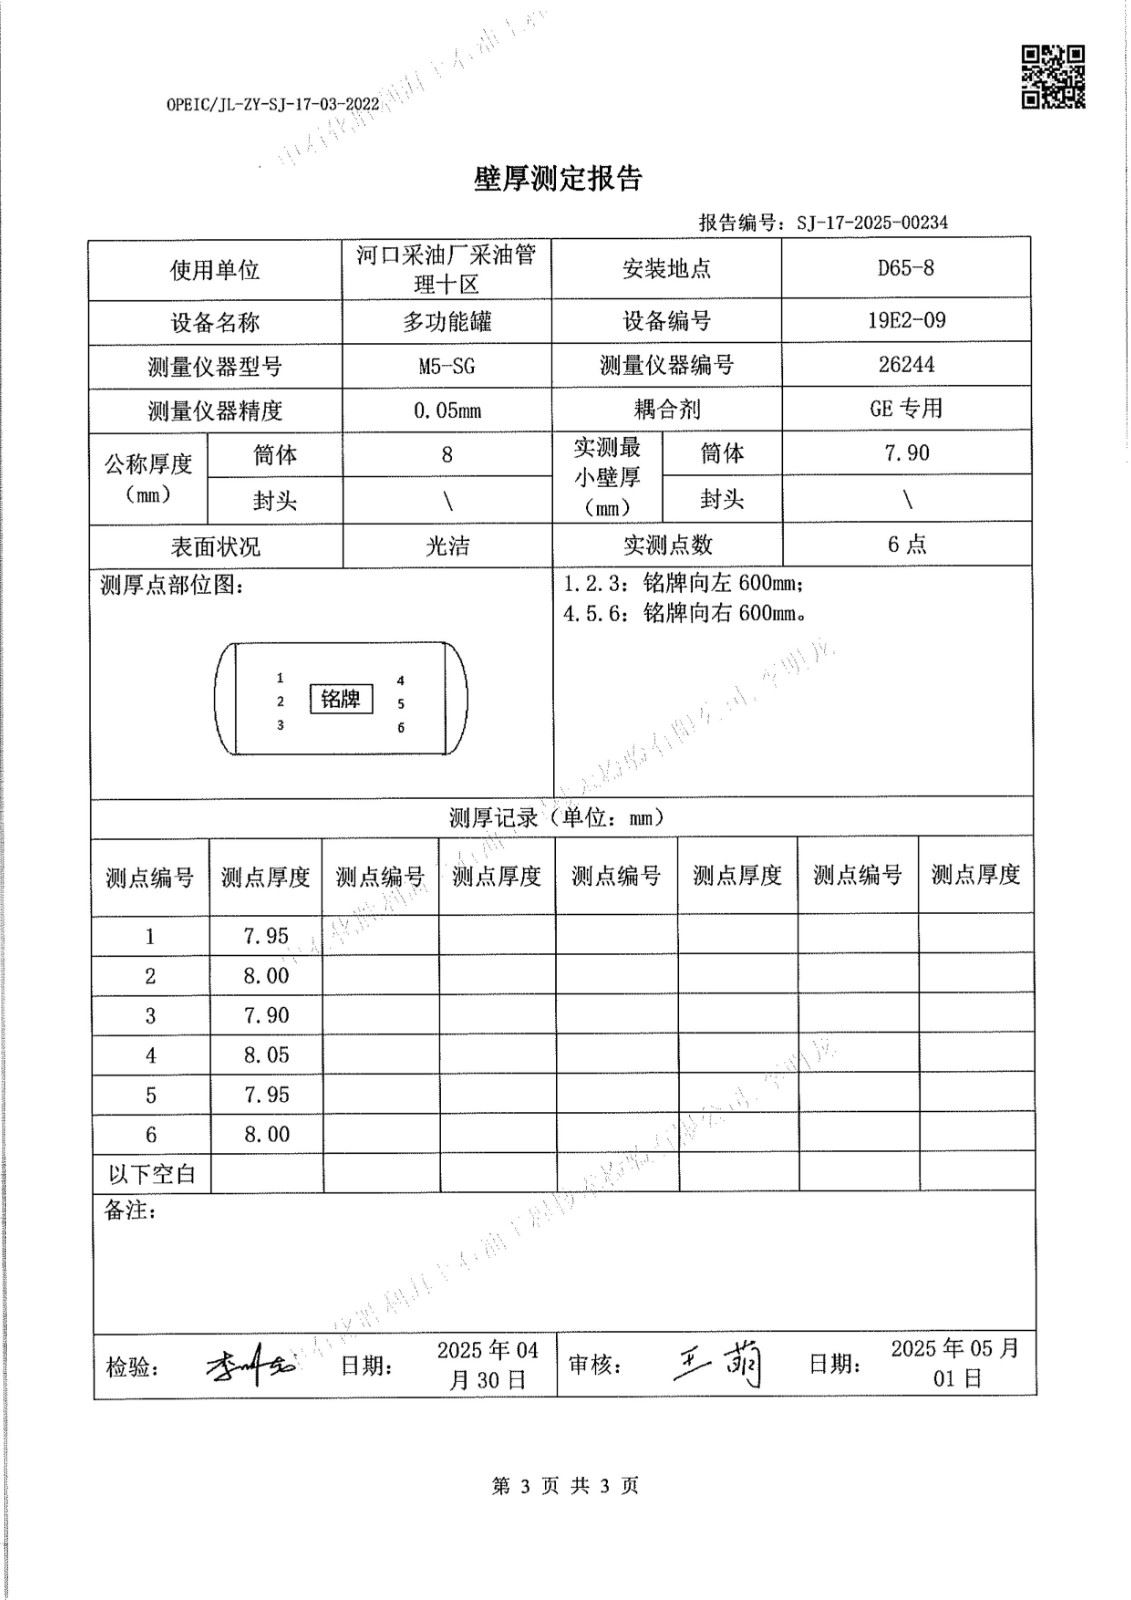 OPEIC/JL-ZY-SJ-17-03-2022
壁厚测定报告
报告编号：SJ-17-2025-00234
使用单位 河口采油厂采油管理十区 安装地点 D65-8
设备名称 多功能罐 设备编号 19E2-09
测量仪器型号 M5-SG 测量仪器编号 26244
测量仪器精度 0.05mm 耦合剂 GE 专用
公称厚度（mm） 筒体 8 实测最小壁厚（mm） 筒体 7.90
封头 \ 封头 \
表面状况 光洁 实测点数 6 点
测厚点部位图：
1 4
2 铭牌 5
3 6
1.2.3：铭牌向左 600mm；
4.5.6：铭牌向右 600mm。
测厚记录（单位：mm）
测点编号 测点厚度 测点编号 测点厚度 测点编号 测点厚度 测点编号 测点厚度
1 7.95
2 8.00
3 7.90
4 8.05
5 7.95
6 8.00
以下空白
备注：
检验： 日期： 2025 年 04 月 30 日 审核： 王萌 日期： 2025 年 05 月 01 日
第 3 页 共 3 页